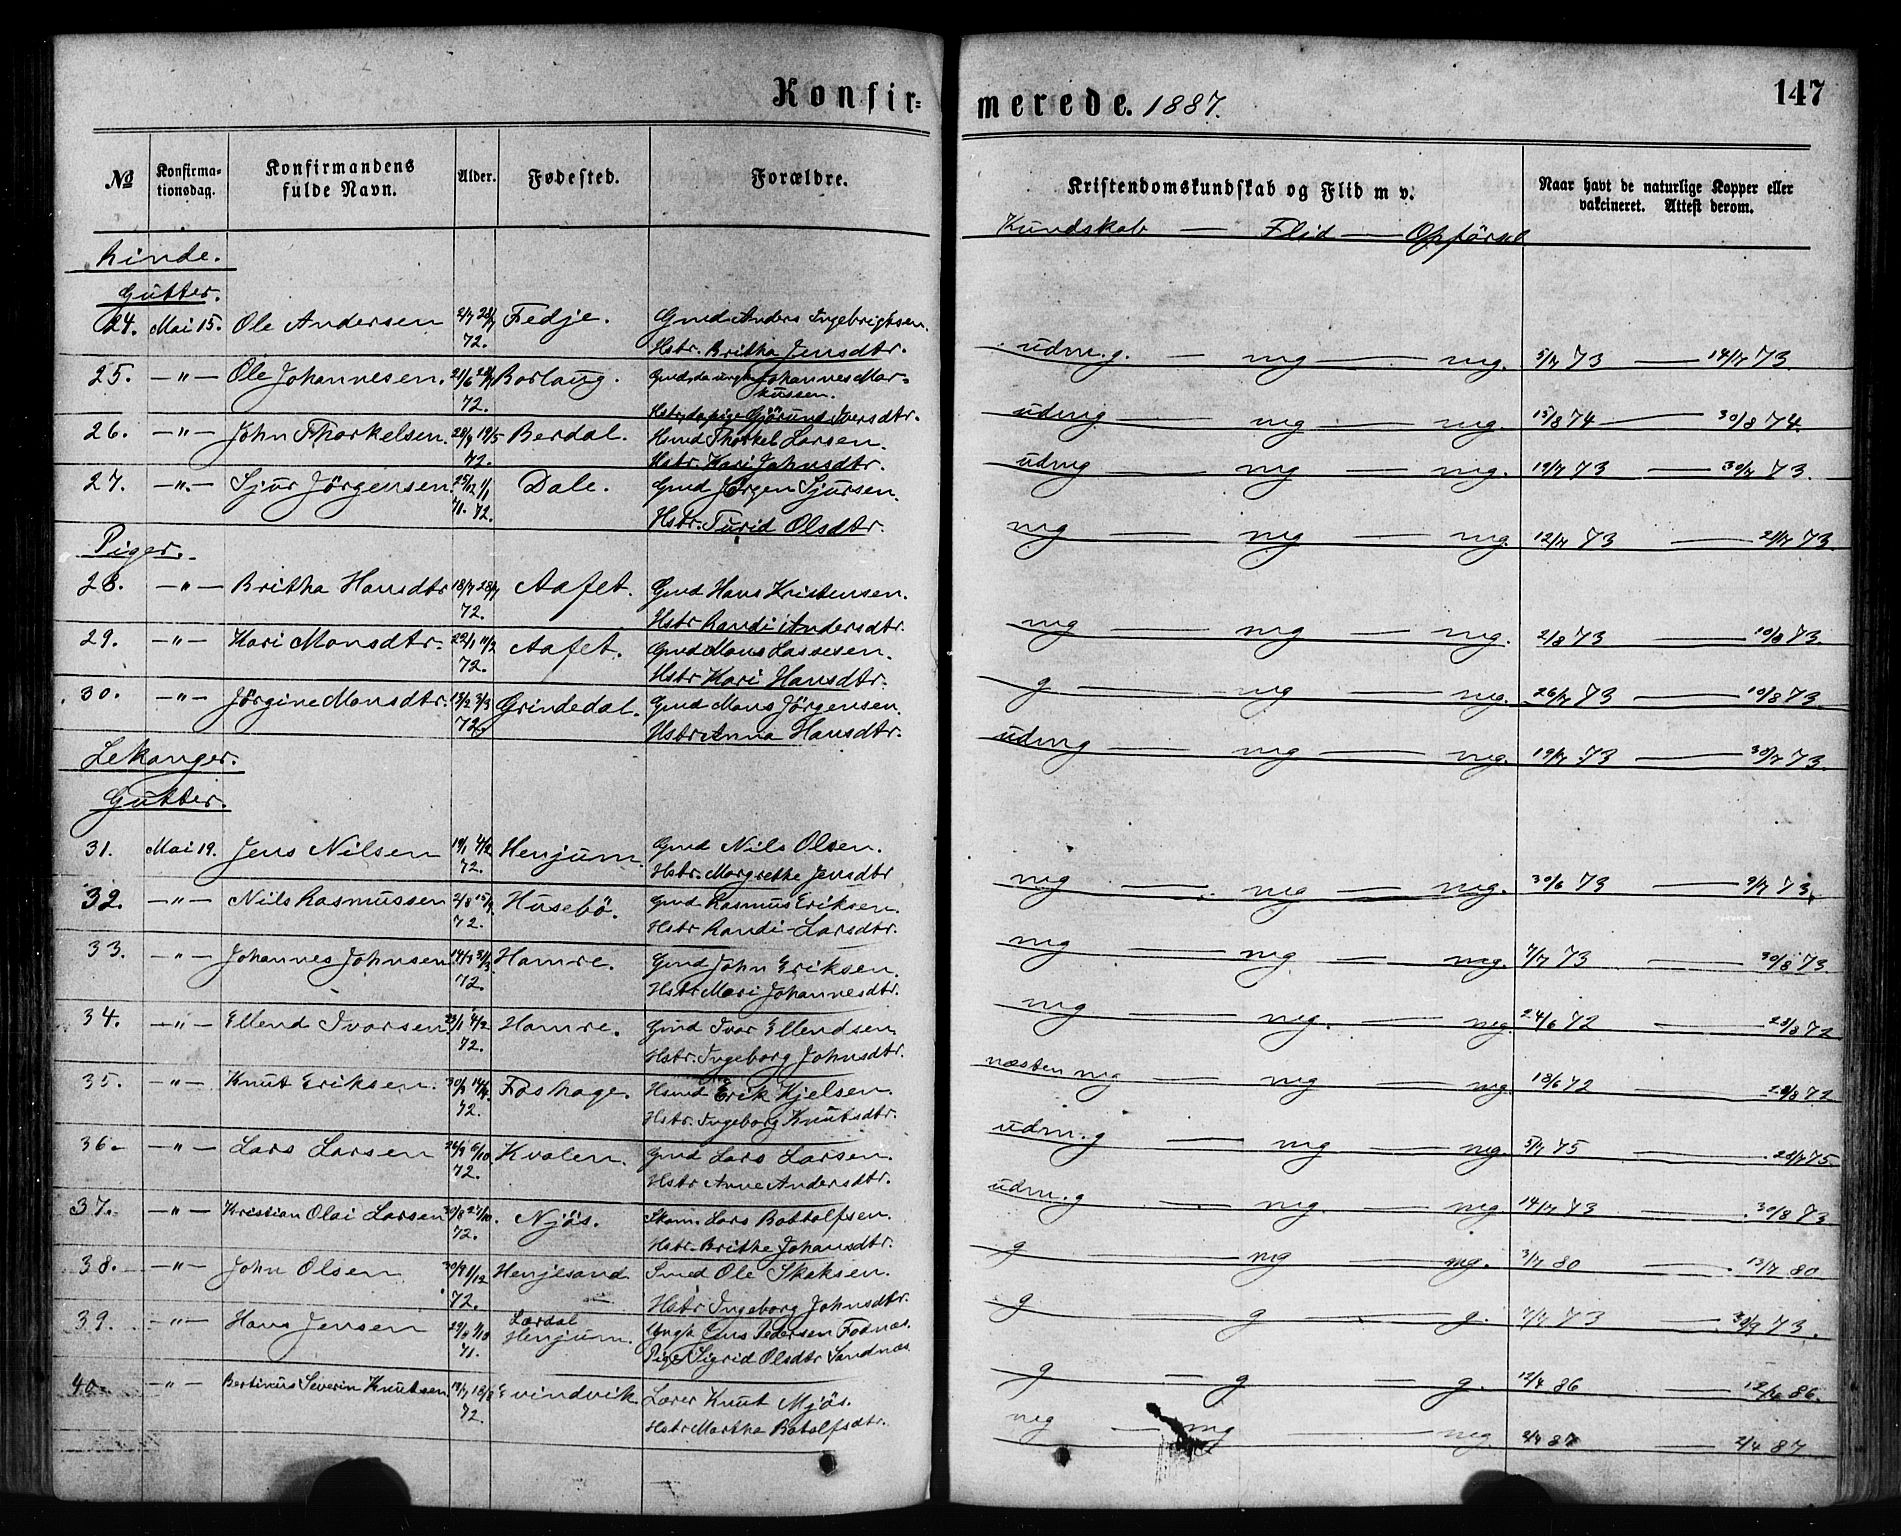 Konfir=
merede. 1887.
147
No
Konfirma-
tionsdag.
Konfirmandens
fulde Navn.
Alder.
Fødested.
Forældre.
Kristendomskundskab og Flid m v.
Naar havt de naturlige Kopper eller
vakcineret. Attest derom.
Kundskab — Flid — Opførsel
Rinde.
Gutter.
24. Mai 15. Ole Andersen Fedje. Gmd Anders Ingebrigtsen.
72. Hstr. Britha Jensdtr.
udm. g. — mg — mg. 5/7 73 — 14/7 73.
25. —"— Ole Johannesen. Borlaug. Johannes Mar-
72. kussen.
Gjörund Iversdtr.
udmg — mg — mg. 15/8 74 — 30/8 74.
26. —"— John Thorkelsen. Berdal. Hsmd Thorkel Larsen
72. Hstr. Kari Johnsdtr.
udmg — mg — mg. 19/7 73 — 30/7 73.
27. —"— Sjur Jörgensen. 25/12 1/1 Dale. Gmd Jörgen Sjursen.
71. 72. Hstr. Turid Olsdtr.
mg — mg — mg. 12/7 73 — 21/7 73.
Piger.
28. —"— Britha Hansdtr 18/7 28/7 Aafet. Gmd Hans Kristensen.
72. Hstr Randi Andersdtr.
mg — mg — mg. 2/8 73 — 10/8 73.
29. —"— Kari Monsdtr. 22/1 11/2 Aafet. Gmd Mons Lassesen.
72. Hstr Kari Hansdtr.
g — mg — mg. 26/7 73 — 10/8 73.
30. —"— Jörgine Monsdtr. 13/2 3/3 Grindedal. Gmd Mons Jörgensen.
72. Hstr Anna Hansdtr.
udmg — mg — mg. 19/7 73 — 30/7 73.
Lekanger.
Gutter.
31. Mai 19. Jens Nilsen 19/1 4/2 Henjum. Gmd Nils Olsen.
72. Hstr. Margrethe Jensdtr
mg — mg — mg. 30/6 73 — 9/7 73.
32. —"— Nils Rasmussen Husebö. Gmd Rasmus Eriksen.
72. Hstr Randi Larsdtr.
mg — mg — mg. 7/7 73 — 30/8 73
33. —"— Johannes Johnsen 14/3 31/3 Hamre. Gmd John Eriksen.
72. Hstr Mari Johannesdtr.
mg — mg. — mg. 24/6 72 — 28/8 72
34. —"— Ellend Ivarsen 23/1 4/2 Hamre. Gmd Ivar Ellendsen
72. Hstr. Ingeborg Johnsdtr.
næsten mg — mg — mg. 18/6 72 — 28/8 72
35. —"— Knut Eriksen. Foshage. Hsmd Erik Kjelsen.
72. Hstr. Ingeborg Knutsdtr.
udm. g — mg — mg. 5/7 75 — 28/7 75
36. —"— Lars Larsen 26/9 6/10 Kvalen. Gmd Lars Larsen.
72. Hstr Anne Andersdtr.
udm. g — mg. — mg. 14/7 73 — 30/8 73
37. —"— Kristian Olai Larsen 30/8 27/10. Njös. Skom. Lars Bottolfsen.
72. Hstr. Brithe Johansdtr.
g — mg — mg. 3/7 80 — 13/7 80
38. —"— John Olsen 1/12 Henjesand Smed Ole Skaksen.
72. Hstr Ingeborg Johnsdtr.
g — g — g. 7/7 73 — 30/9 73.
39. —"— Hans Jensen Lærdal
Henjum. Ungk Jens Pedersen Fodnæs.
71. Pige Sigrid Olsdtr Sandnæs
g — g — g. 12/4 86 — 12/4 86.
40. —"— Bertinus Severin Knutsen Evindvik. Lærer Knut Mjös.
72. Hstr Martha Botolfsdtr.
mg — mg — mg. 2/4 87 — 2/4 87